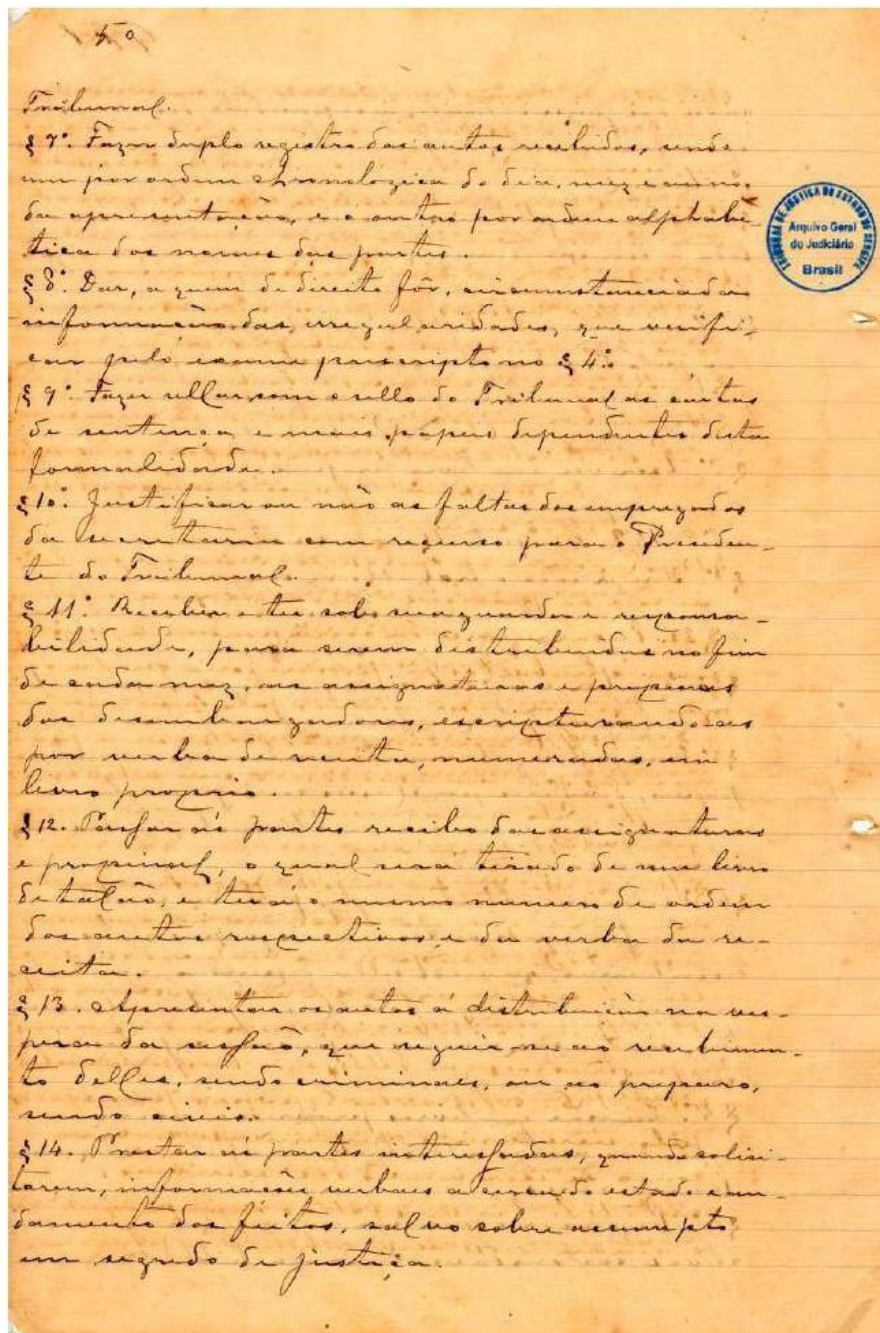 5º
Tribunal.
§ 7º. Fazer duplo registro dos autos recebidos, sendo
um por ordem chronologica do dia, mez e anno
da apresentação, e o outro por ordem alphabe-
tica dos nomes das partes.
§ 8º. Dar, a quem de direito fôr, circumstanciada
informação das irregularidades, que verifi-
car pelo exame prescripto no § 4º.
§ 9º. Fazer sellar com o sello do Tribunal as cartas
de sentença e mais papeis dependentes desta
formalidade.
§ 10º. Justificar ou não as faltas dos empregados
da secretaria com recurso para o Presiden-
te do Tribunal.
§ 11º. Receber e ter sob sua guarda e responsa-
bilidade, para serem distribuidas no fim
de cada mez, as assignaturas e propinas
dos desembargadores, escripturando-as
por verba de receita, numeradas, em
livro proprio.
§ 12. Passar ás partes recibo das assignaturas
e propinas, o qual será tirado de um livro
de talão, e terá o mesmo numero de ordem
dos autos respectivos e da verba da re-
ceita.
§ 13. Apresentar os autos á distribuição na ves-
pera da sessão, que seguir-se ao recebimen-
to delles, sendo criminaes, ou ao preparo,
sendo civeis.
§ 14. Prestar ás partes interessadas, quando solici-
tarem, informações verbaes acerca do estado e an-
damento dos feitos, salvo sobre assumpto
em segredo de justiça.
TRIBUNAL DE JUSTIÇA DO ESTADO DE SERGIPE
Arquivo Geral
do Judiciário
Brasil